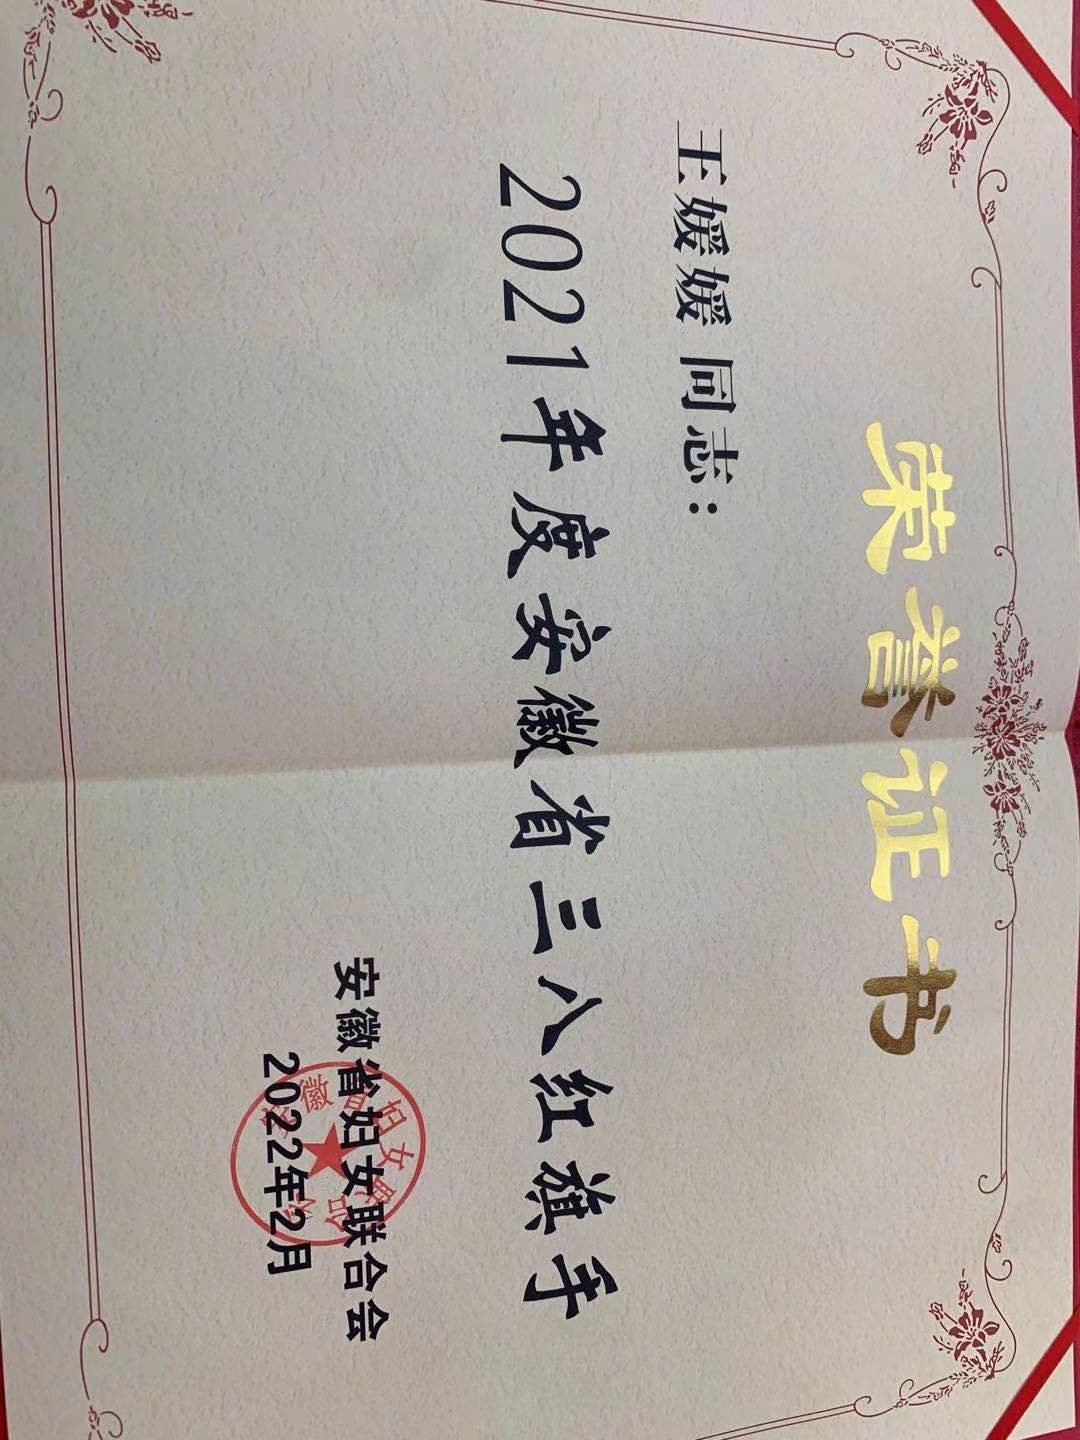 荣誉证书
王媛媛 同志：
2021年度安徽省三八红旗手
安徽省妇女联合会
2022年2月
安徽省妇女联合会